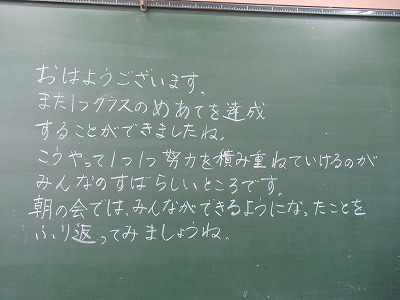 おはようございます。
また1つクラスのめあてを達成
することができましたね。
こうやって1つ1つ努力を積み重ねていけるのが
みんなのすばらしいところです。
朝の会では、みんなができるようになったことを
ふり返ってみましょうね。